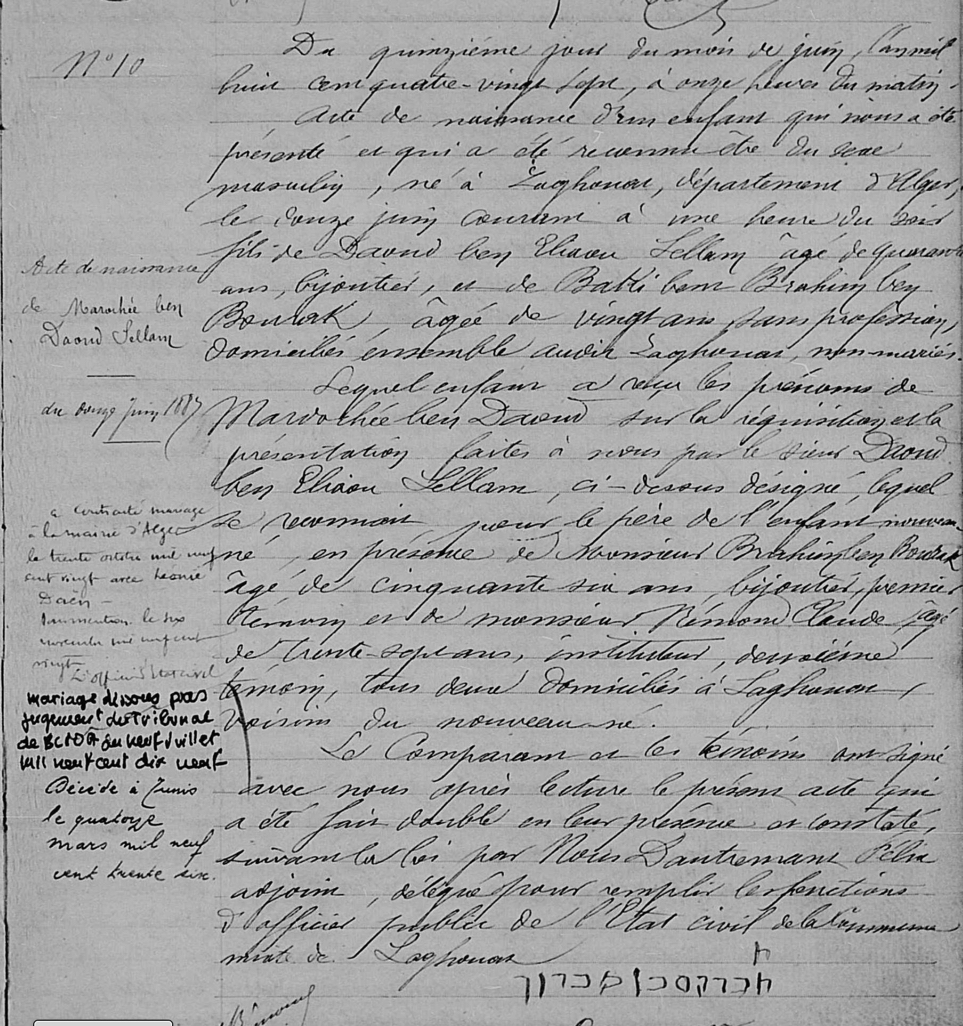 N° 10
Du quinzième jour du mois de juin, l'an mil
huit cent quatre-vingt sept, à onze heures du matin.
Acte de naissance d'un enfant qui nous a été
présenté et qui a été reconnu être du sexe
masculin, né à Laghouat, département d'Alger,
le douze juin courant à une heure du soir
fils de Daoud ben Eliaou Sellam âgé de quarante
ans, bijoutier, et de Batti bent Brahim ben
Bourak, âgée de vingt ans, sans profession,
domiciliés ensemble audit Laghouat, non-mariés.
Lequel enfant a reçu les prénoms de
Mardochée ben Daoud sur la réquisition et la
présentation faites à nous par le sieur Daoud
ben Eliaou Sellam, ci-dessus désigné, lequel
se reconnait pour le père de l'enfant nouveau
né, en présence de Monsieur Brahim ben Bourak
âgé de cinquante six ans, bijoutier, premier
témoin et de monsieur Rémond Claude, âgé
de trente-sept ans, instituteur, deuxième
témoin, tous deux domiciliés à Laghouat,
voisins du nouveau-né.
Le Comparant et les témoins ont signé
avec nous après lecture le présent acte qui
a été fait double en leur présence et constaté,
suivant la loi par Nous Dautremant Félix
adjoint, délégué pour remplir les fonctions
d'officier public de l'Etat civil de la Commune
mixte de Laghouat
Acte de naissance
de Marochée ben
Daoud Sellam
du douze Juin 1887
a contracté mariage
à la mairie d'Alger
le trente octobre mil neuf
cent vingt avec Léonie
le six
novembre mil neuf cent
vingt
L'officier d'Etat civil
mariage dissous par
jugement du Tribunal
de du neuf Juillet
mil neuf cent dix neuf
Décédé à Tunis
le quatorze
mars mil neuf
cent trente six.